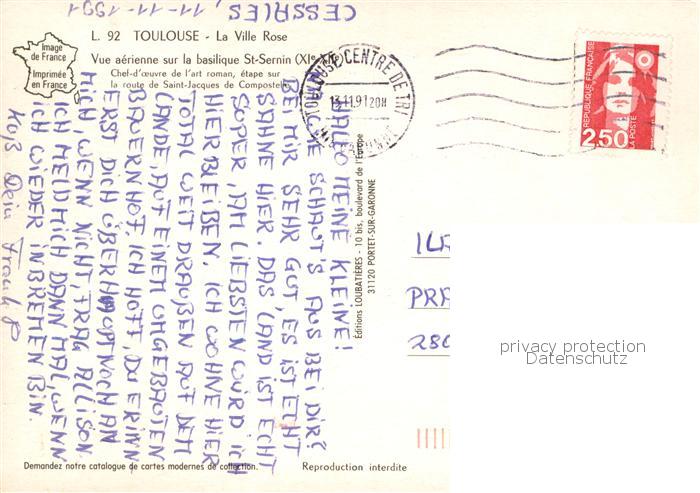 CESSALES, 11-11-1991
L. 92 TOULOUSE - La Ville Rose
Vue aérienne sur la basilique St-Sernin
Chef-d'œuvre de l'art roman, étape sur
la route de Saint-Jacques de Compostelle
Image
de France
Imprimée
en France
TOULOUSE CENTRE DE TRI
13.11.91 20H
HTE GARONNE
REPUBLIQUE FRANÇAISE
2,50
LA POSTE
HALLO MEINE KLEINE!
NA, WIE SCHAUT'S AUS BEI DIR?
BEI MIR SEHR GUT, ES IST ECHT
SAHNE HIER. DAS LAND IST ECHT
SUPER, AM LIEBSTEN WÜRD ICH
HIERBLEIBEN. ICH WOHNE HIER
TOTAL WEIT DRAUßEN AUF DEM
LANDE, AUF EINEM UMGEBAUTEN
BAUERNHOF. ICH HOFF, DU ERINN
ERST DICH ÜBERHAUPT NOCH AN
MICH, WENN NICHT, FRAG ALLISON
ICH MELD MICH DANN MAL, WENN
ICH WIEDER IN BREMEN BIN.
Dein Frank
Editions LOUBATIÈRES - 10 bis, boulevard de l'Europe
31120 PORTET-SUR-GARONNE
PRA
280
privacy protection
Datenschutz
Demandez notre catalogue de cartes modernes de collection.
Reproduction interdite